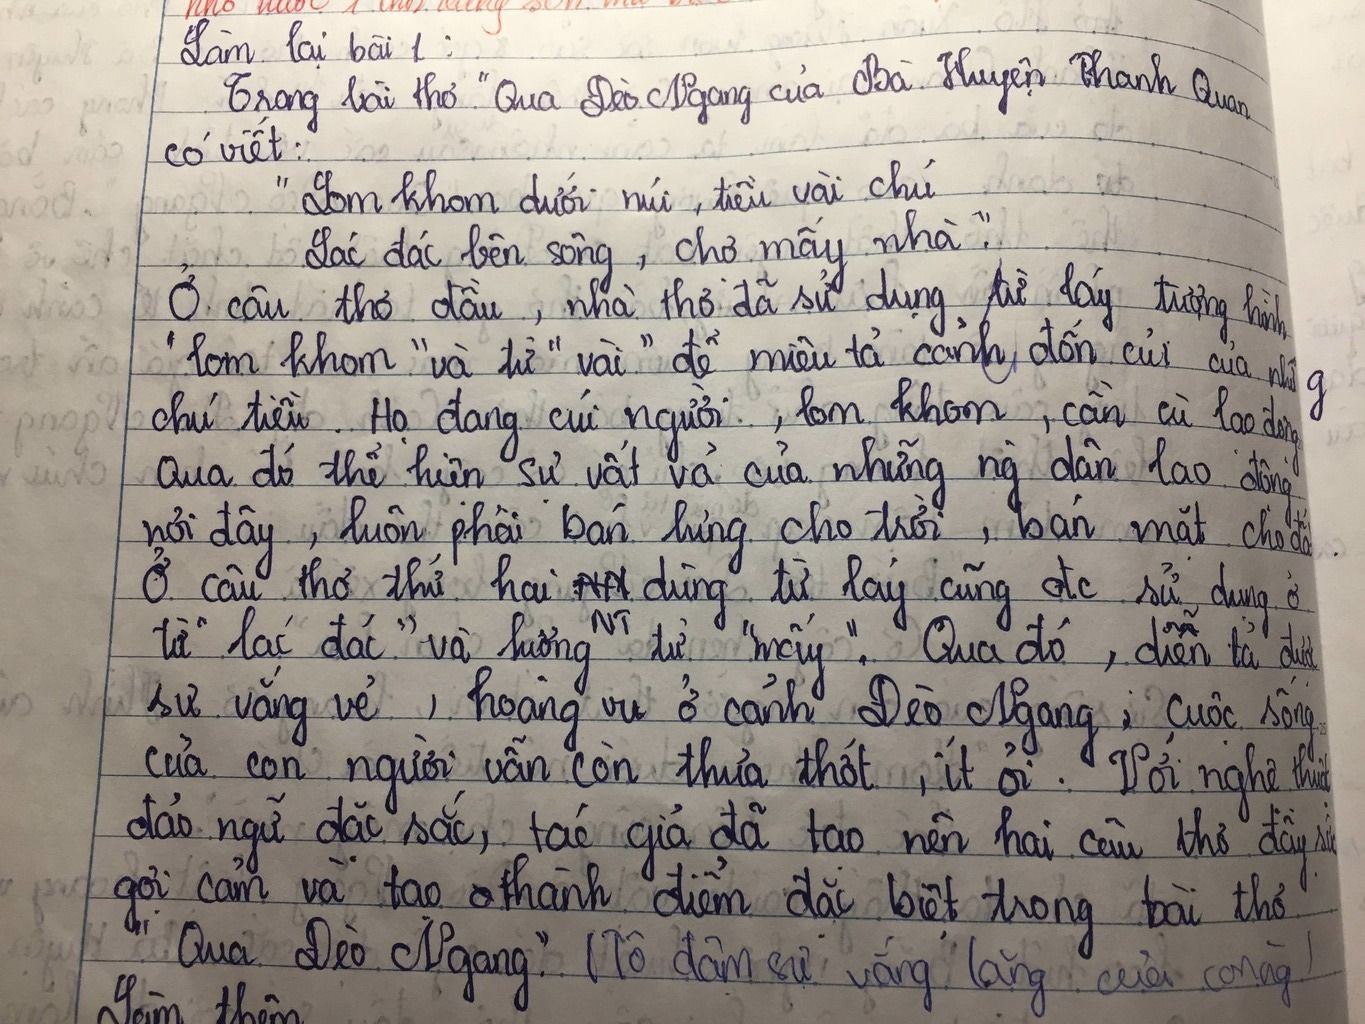 Làm lại bài 1 :
Trong bài thơ " Qua Đèo Ngang của Bà Huyện Thanh Quan
có viết:
" Lom khom dưới núi , tiều vài chú
Lác đác bên sông , chợ mấy nhà".
Ở câu thơ đầu , nhà thơ đã sử dụng từ láy tượng hình
" lom khom " và từ " vài " để miêu tả cảnh đốn củi của những
chú tiều . Họ đang cúi người , lom khom , cần cù lao động
Qua đó thể hiện sự vất vả của những ng dân lao động
nơi đây , luôn phải bán lưng cho trời , bán mặt cho đất .
Ở câu thơ thứ hai dùng từ láy cũng đc sử dụng ở
từ " lác đác " và lượng NT từ "mấy". Qua đó , diễn tả được
sự vắng vẻ , hoang vu ở cảnh Đèo Ngang ; cuộc sống
của con người vẫn còn thưa thớt , ít ỏi . Với nghệ thuật
đảo ngữ đặc sắc, tác giả đã tạo nên hai câu thơ đầy sức
gợi cảm và tạo thành điểm đặc biệt trong bài thơ
" Qua Đèo Ngang". (Tô đậm sự vắng lặng của
Làm thêm